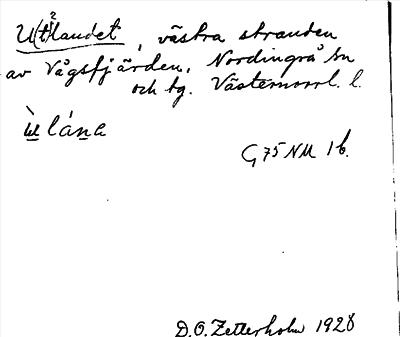 U(t)²landet, västra stranden
av Vågsfjärden, Nordingrå sn
och tg. Västernorrl. l.
lána
G 75 NM 1b.
D.O. Zetterholm 1928